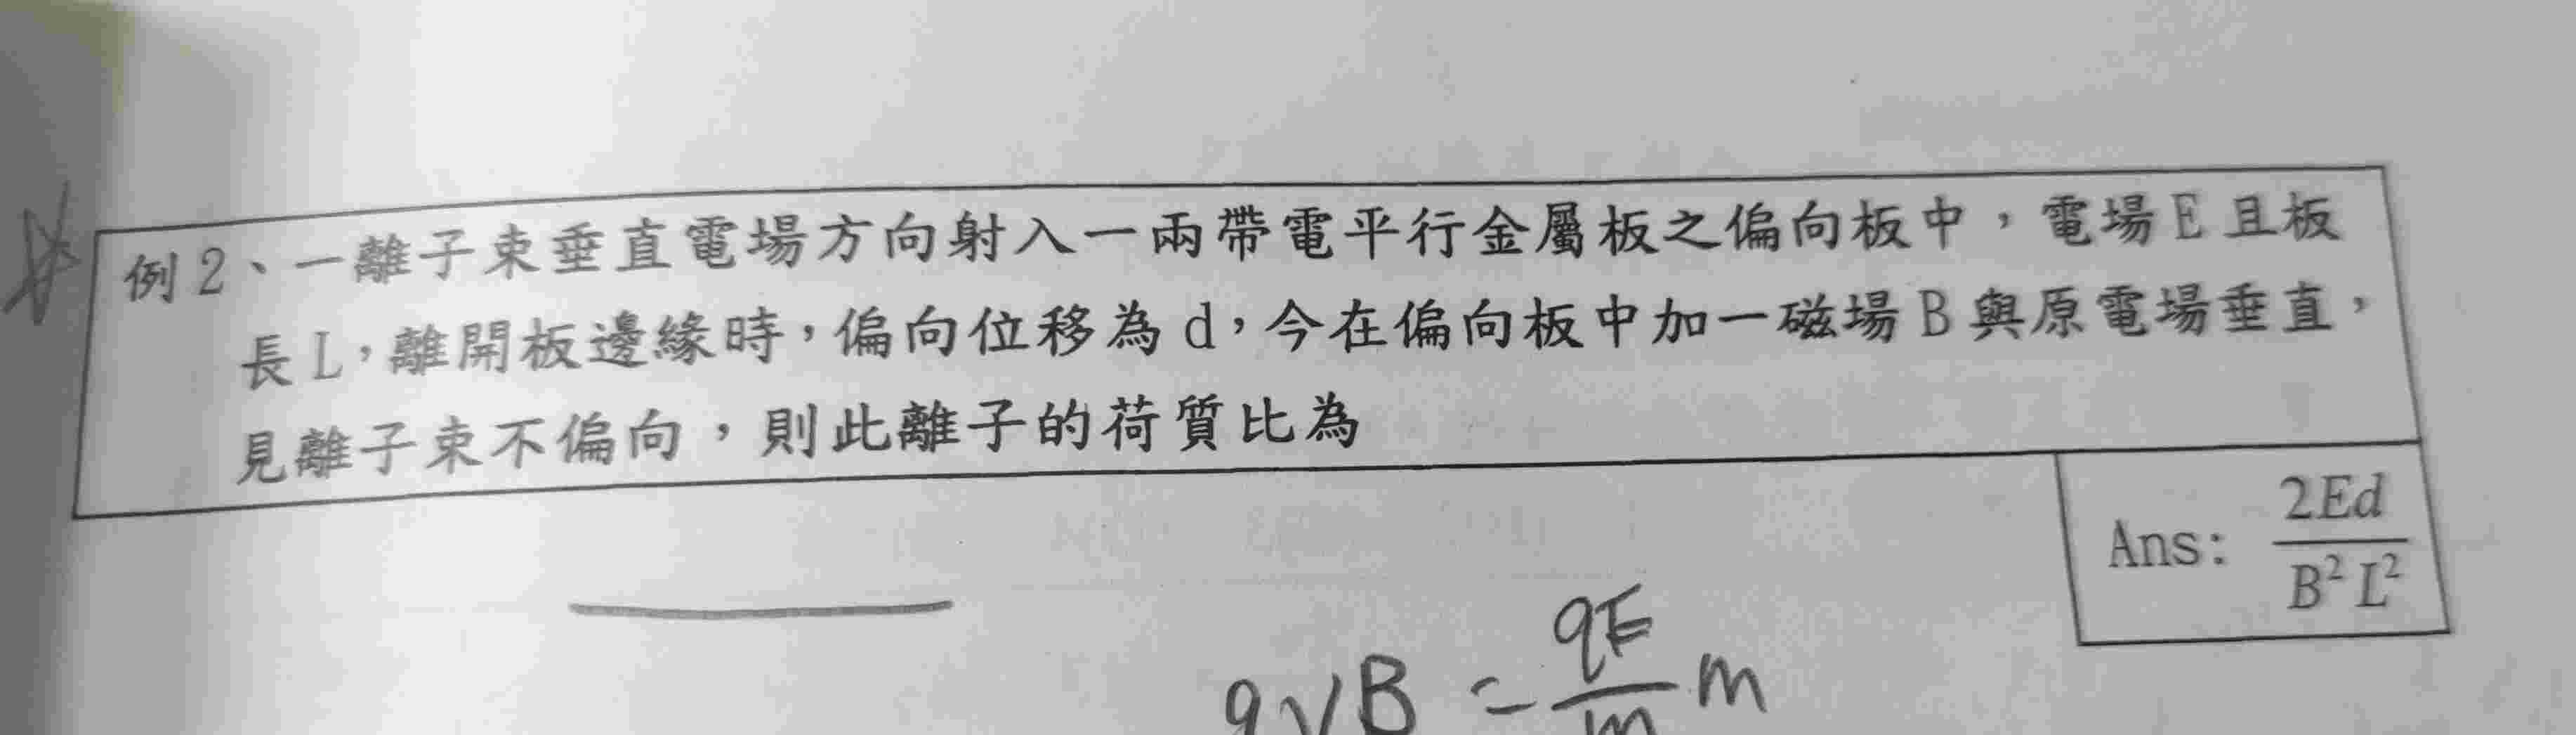 例2、一離子束垂直電場方向射入一兩帶電平行金屬板之偏向板中，電場E且板
長L，離開板邊緣時，偏向位移為d，今在偏向板中加一磁場B與原電場垂直，
見離子束不偏向，則此離子的荷質比為
Ans: \frac{2Ed}{B^2 L^2}
qvB = \frac{qE}{m} m